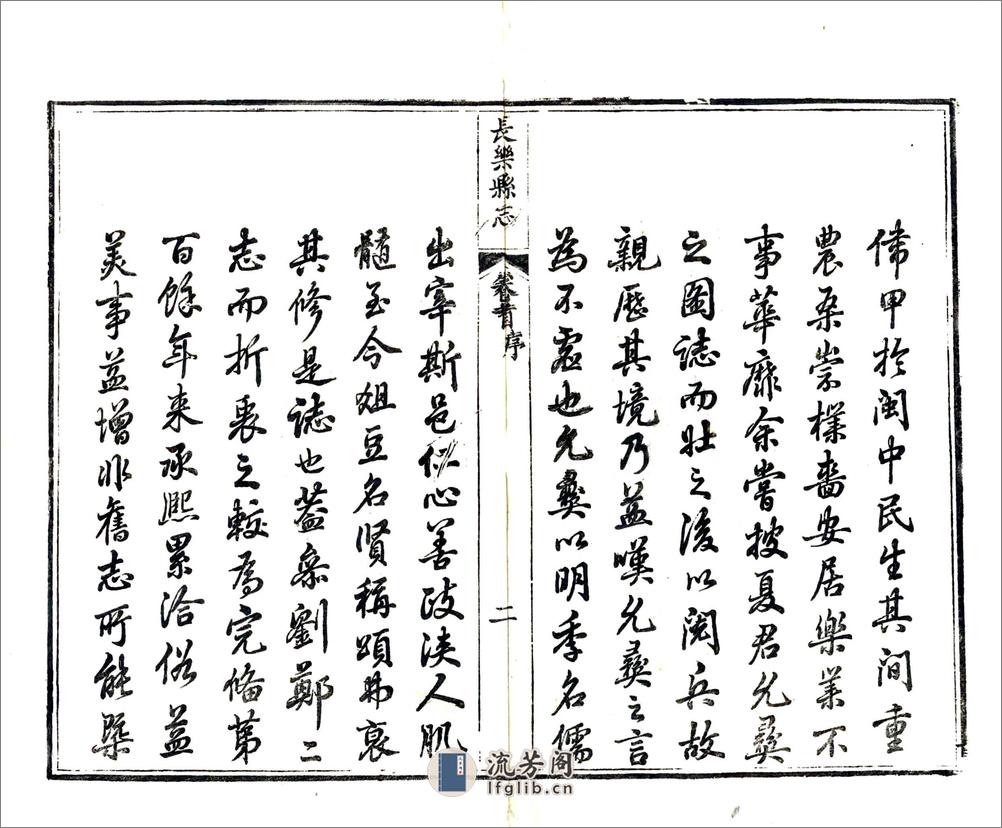 偉甲於閩中民生其間重
農桑崇樸嗇安居樂業不
事華靡余嘗披夏君允彝
之圖誌而壯之後以閱兵故
親歷其境乃益嘆允彝之言
為不虛也允彝以明季名儒
長樂縣志
卷首
序
二
出宰斯邑仁心善政浹人肌
髓至今俎豆名賢稱頌弗衰
其修是誌也蓋桼劉鄭二
志而折衷之較為完備第
百餘年來承熙累洽俗益
美事益增非舊志所能槩
流芳阁
lfglib.cn